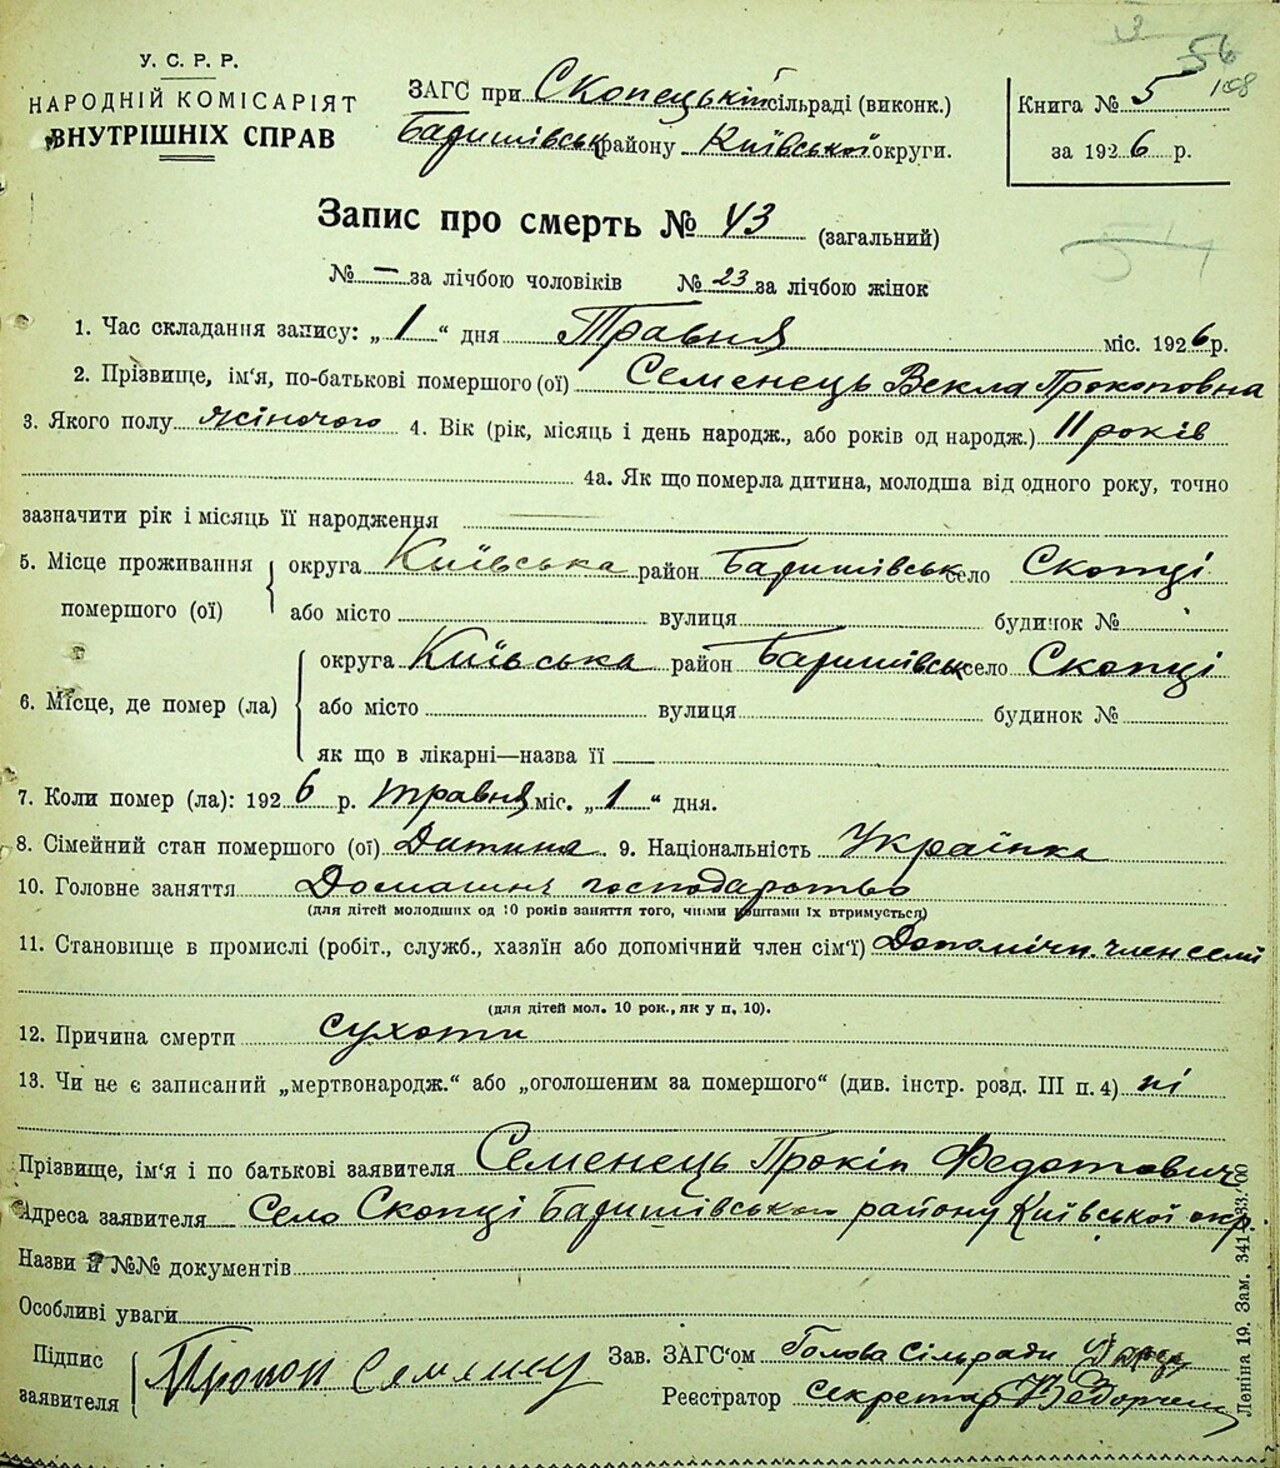 3
56
108
У. С. Р. Р.
НАРОДНІЙ КОМІСАРІЯТ
ВНУТРІШНІХ СПРАВ
ЗАГС при Скопецькій сільраді (виконк.)
Баришівськ району Київської округи.
Книга № 5
за 1926 р.
Запис про смерть № 43 (загальний)
54
№ — за лічбою чоловіків № 23 за лічбою жінок
1. Час складання запису: „1“ дня Травня міс. 1926 р.
2. Прізвище, ім'я, по-батькові помершого (ої) Семенець Векла Прокоповна
3. Якого полу жіночого 4. Вік (рік, місяць і день народж., або років од народж.) 11 років
4а. Як що померла дитина, молодша від одного року, точно
зазначити рік і місяць її народження —
5. Місце проживання помершого (ої) округа Київська район Баришівськ село Скопці
або місто вулиця будинок №
6. Місце, де помер (ла) округа Київська район Баришівськ село Скопці
або місто вулиця будинок №
як що в лікарні—назва її
7. Коли помер (ла): 1926 р. травня міс. „1“ дня.
8. Сімейний стан помершого (ої) Дитина 9. Національність Українка
10. Головне заняття Домашнє господарство
(для дітей молодших од 10 років заняття того, чиїми коштами їх втримується)
11. Становище в промислі (робіт., служб., хазяїн або допомічний член сім'ї) Допомічн. член семї
(для дітей мол. 10 рок., як у п. 10).
12. Причина смерти сухоти
13. Чи не є записаний „мертвонародж.“ або „оголошеним за помершого“ (див. інстр. розд. III п. 4) ні
Прізвище, ім'я і по батькові заявителя Семенець Прокіп Федотович
Адреса заявителя Село Скопці Баришівського району Київської окр.
Назви й №№ документів
Особливі уваги
Підпис заявителя Прокоп Семенец
Зав. ЗАГС'ом Голова Сільради
Реєстратор Секретар
Леніна 19. Зам. 341